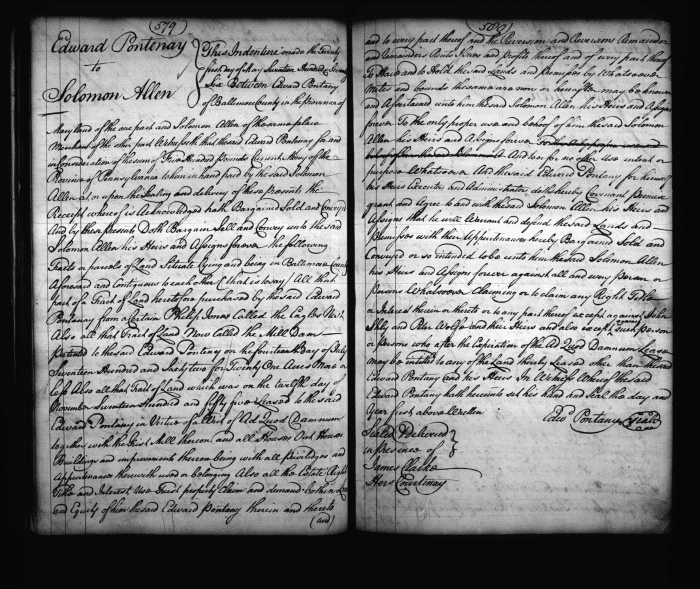 579
Edward Pontenay
to
Solomon Allen
This Indenture made the Twenty
first day of May Seventeen Hundred & Seventy
Six Between Edward Pontany
of Baltimore County in the Province of
Maryland of the one part and Solomon Allen of the same place
Merchant of the other part Witnesseth that the said Edward Pontenay for and
in Consideration of the sum of Five Hundred Pounds Current Money of the
Province of Pennsylvania to him in hand paid by the said Solomon
Allen at or upon the Sealing and delivery of these presents the
Receipt whereof is Acknowledged hath Bargained Sold and Conveyed
And by these Presents Doth Bargain Sell and Convey unto the said
Solomon Allen his Heirs and Assigns forever the following
Tracts or parcels of Land Situate Lying and being in Baltimore County
aforesaid and Contiguous to each other (that is to say) All that
part of a Tract of Land heretofore purchased by the said Edward
Pontenay from a Certain Philip Jones Called the Eagles Nest
Also all that Tract of Land Now Called the Mill Dam
Patented to the said Edward Pontenay on the fourteenth day of
Seventeen Hundred and Sixty two for Twenty One Acres More or
Less Also all that Tract of Land which was on the Twelfth day of
November Seventeen Hundred and fifty five Leased to the said
Edward Pontany in Virtue of a Writ of Ad Quod Damnum
together with the Grist Mill thereon and all Houses Out Houses
Buildings and improvements thereon being with all Priviledges and
Appurtenances therewith used or belonging Also all the Estate Right
Title and Interest Use Trust property Claim and demand both in Law
and Equity of him the said Edward Pontany therein and thereto
(and)
580
and to every part thereof and the Reversion and Reversions Remainder
and Remainders Rents Issues and Profits thereof and of every part thereof
To Have and to Hold the said Lands and Premises by Whatsoever
Metes and bounds the same are now or hereafter may be known
and Ascertained unto him the said Solomon Allen his Heirs and Assigns
forever To the only proper use and behoof of him the said Solomon
Allen his Heirs and Assigns forever to the only proper use and
behoof of him the said Solomon A And to and for no other Use intent or
purpose Whatsoever And the said Edward Pontany for himself
his Heirs Executors and Administrators doth hereby Covenant promise
grant and Agree to and with the said Solomon Allen his Heirs and
Assigns that he will Warrant and defend the said Lands and
Premisses with their Appurtenances hereby Bargained Sold and
Conveyed or so intended to be unto him the said Solomon Allen
his Heirs and Assigns forever against all and every Person or
Persons Whatsoever Claiming or to claim any Right Title
or Interest therein or thereto or to any part thereof except against John
and Peter and their Heirs and also except such person
or persons who after the Expiration of the Ad Quod Damnum Lease
may be intitled to any of the Land thereby Leased other than the said
Edward Pontany and his Heirs In Witness Whereof the said
Edward Pontany hath hereunto set his hand and Seal the day and
Year first above Written
Edwd Pontany Seal
Sealed & Delivered
in presence of
James Clarke
Hers Courtenay